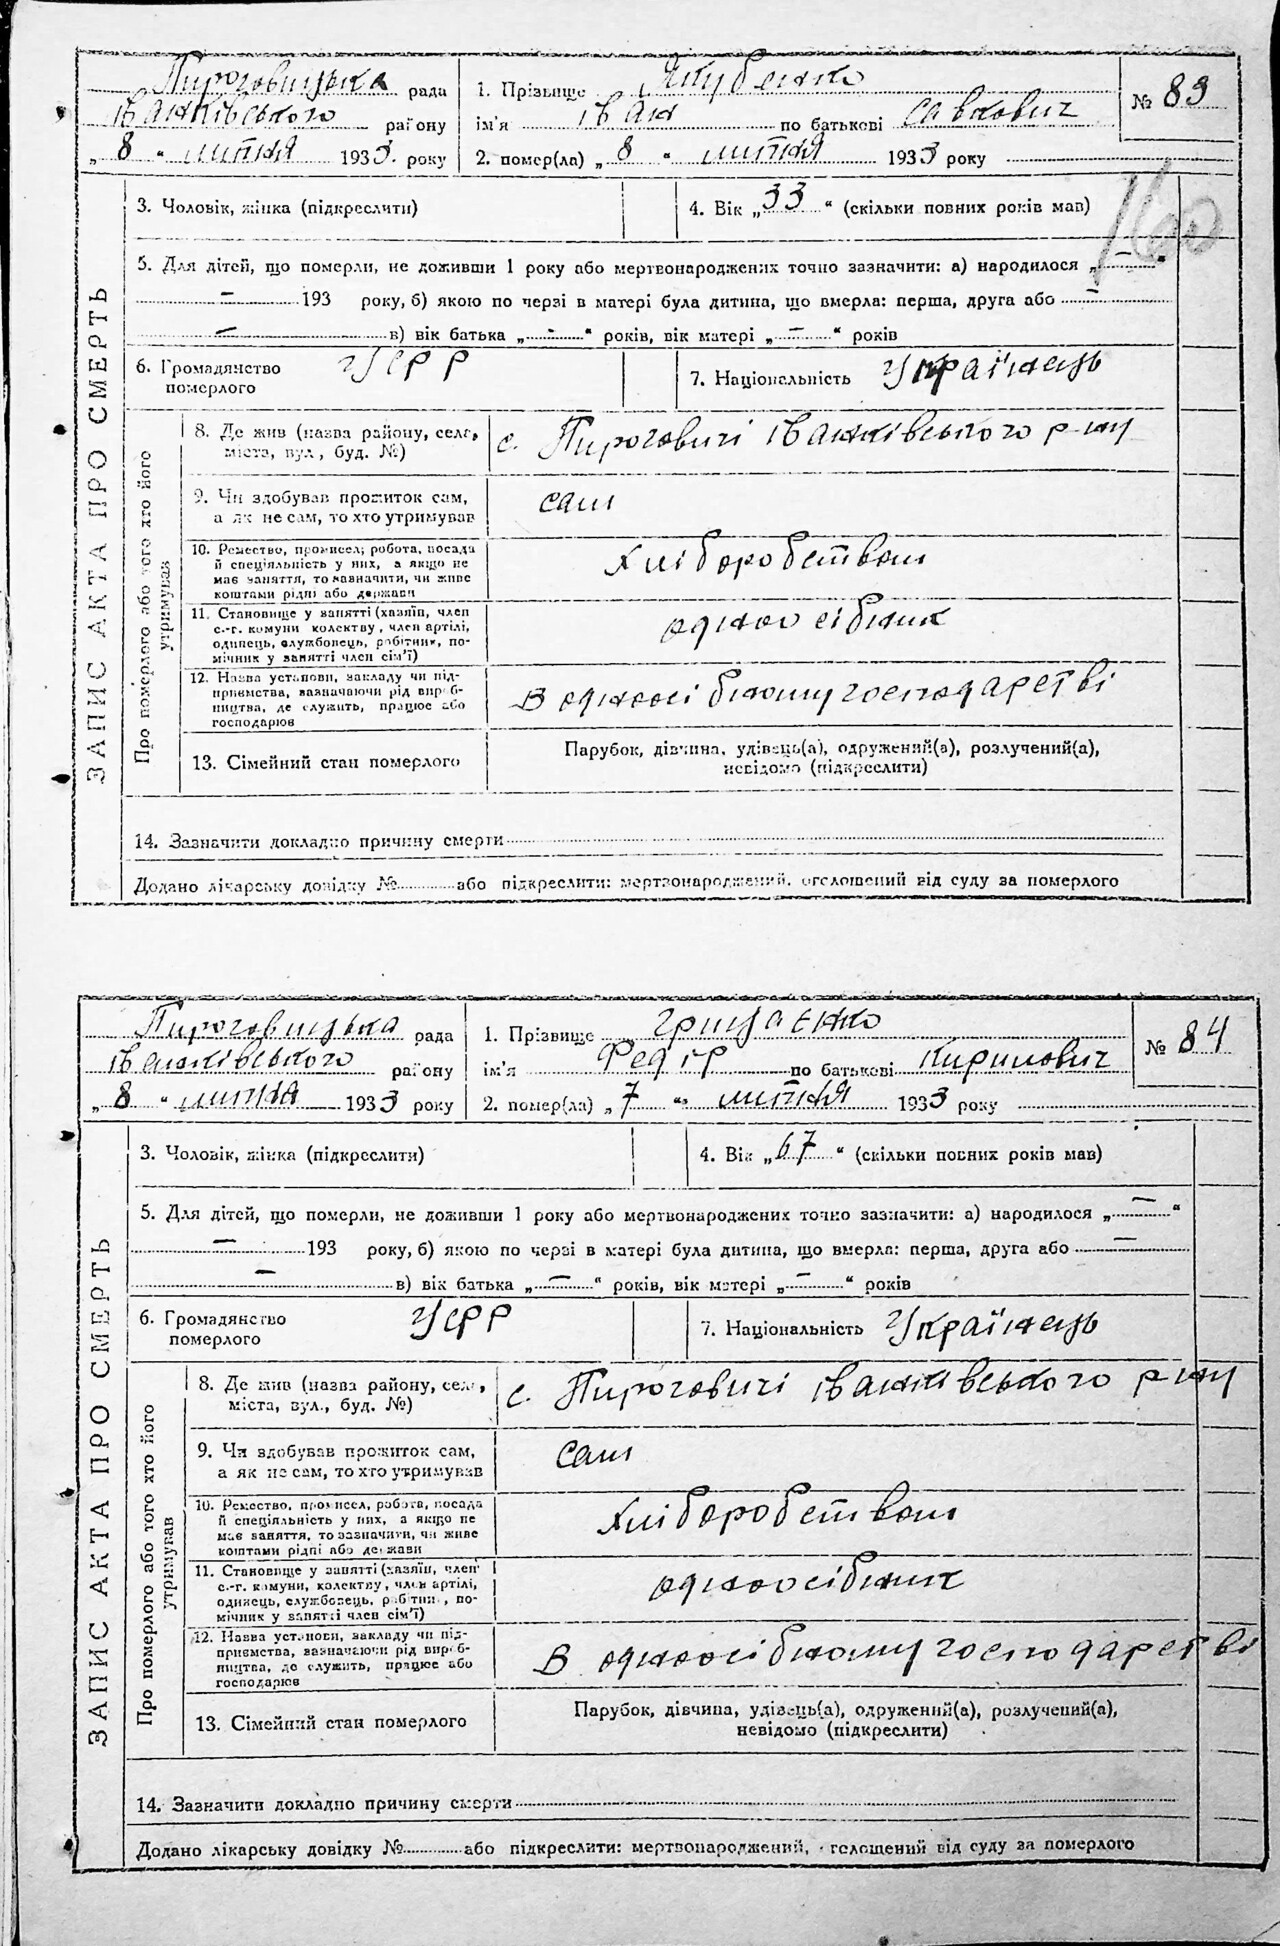 Пироговицька рада
Іванківського району
„ 8 “ липня 1933. року
1. Прізвище Якубенко
ім'я Іван по батькові Савкович
2. помер(ла) „ 8 “ липня 1933 року
№ 83
160
ЗАПИС АКТА ПРО СМЕРТЬ
3. Чоловік, жінка (підкреслити)
4. Вік „ 33 “ (скільки повних років мав)
5. Для дітей, що померли, не доживши 1 року або мертвонароджених точно зазначити: а) народилося „ — “
— 193 року, б) якою по черзі в матері була дитина, що вмерла: перша, друга або —
— в) вік батька „ - “ років, вік матері „ — “ років
6. Громадянство
померлого
УСРР
7. Національність Українець
Про померлого або того хто його
утримував
8. Де жив (назва району, села,
міста, вул., буд. №)
с. Пироговичі Іванківського р-ну
9. Чи здобував прожиток сам,
а як не сам, то хто утримував
сам
10. Ремество, промисел, робота, посада
й спеціяльність у них, а якщо не
має заняття, то зазначити, чи живе
коштами рідні або держави
Хліборобством
11. Становище у занятті (хазяїн, член
с.-г. комуни колектву, член артілі,
одинець, службовець, робітник, по-
мічник у занятті член сім'ї)
одноосібник
12. Назва установи, закладу чи під-
приємства, зазначаючи рід вироб-
ництва, де служить, працює або
господарює
В одноосібному господарстві
13. Сімейний стан померлого
Парубок, дівчина, удівець(а), одружений(а), розлучений(а),
невідомо (підкреслити)
14. Зазначити докладно причину смерти
Додано лікарську довідку № або підкреслити: мертвонароджений, оголошений від суду за померлого
Пироговицька рада
Іванківського району
„ 8 “ липня 1933 року
1. Прізвище Грищенко
ім'я Федір по батькові Кирилович
2. помер(ла) „ 7 “ липня 1933 року
№ 84
ЗАПИС АКТА ПРО СМЕРТЬ
3. Чоловік, жінка (підкреслити)
4. Вік „ 67 “ (скільки повних років мав)
5. Для дітей, що померли, не доживши 1 року або мертвонароджених точно зазначити: а) народилося „ — “
— 193 року, б) якою по черзі в матері була дитина, що вмерла: перша, друга або —
— в) вік батька „ — “ років, вік матері „ — “ років
6. Громадянство
померлого
УСРР
7. Національність Українець
Про померлого або того хто його
утримував
8. Де жив (назва району, села,
міста, вул., буд. №)
с. Пироговичі Іванківського р-ну
9. Чи здобував прожиток сам,
а як не сам, то хто утримував
сам
10. Ремество, промисел, робота, посада
й спеціяльність у них, а якщо не
має заняття, то зазначити, чи живе
коштами рідні або держави
Хліборобством
11. Становище у занятті (хазяїн, член
с.-г. комуни, колектву, член артілі,
одинець, службовець, робітник, по-
мічник у занятті член сім'ї)
одноосібник
12. Назва установи, закладу чи під-
приємства, зазначаючи рід вироб-
ництва, де служить, працює або
господарює
В одноосібному господарстві
13. Сімейний стан померлого
Парубок, дівчина, удівець(а), одружений(а), розлучений(а),
невідомо (підкреслити)
14. Зазначити докладно причину смерти
Додано лікарську довідку № або підкреслити: мертвонароджений, оголошений від суду за померлого